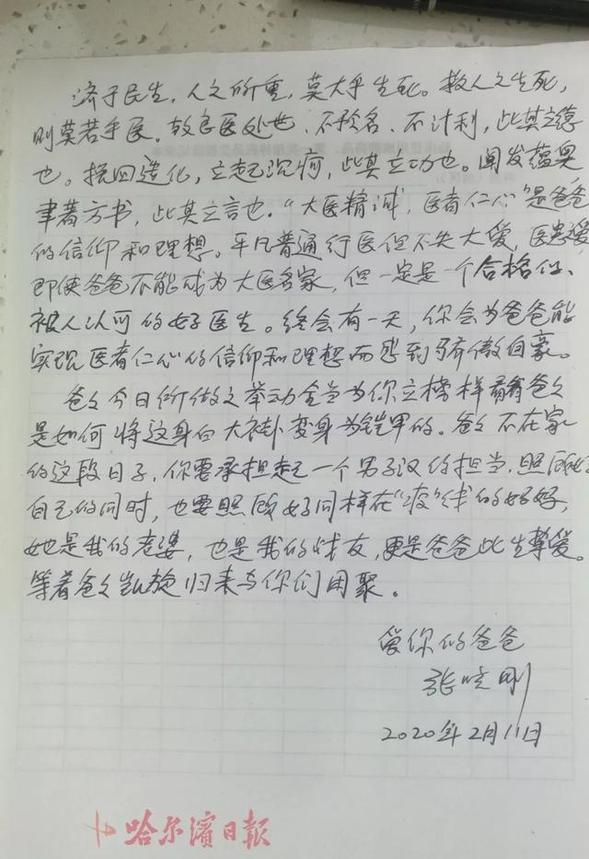 济于民生，人之所重，莫大乎生死。救人之生死，
则莫若乎医。故良医处世，不矜名，不计利，此其立德
也。挽回造化，立起沉疴，此其立功也。阐发蕴奥，
聿著方书，此其立言也。“大医精诚，医者仁心”是爸爸
的信仰和理想。平凡普通行医但不失大爱，医患爱
即使爸爸不能成为大医名家，但一定是一个合格的、
被人认可的好医生。终会有一天，你会为爸爸能
实现医者仁心的信仰和理想而感到骄傲自豪。
爸爸今日所做之举动全当为你立榜样看看爸爸
是如何将这身白大褂变身为铠甲的。爸爸不在家
的这段日子，你要承担起一个男子汉的担当，照顾好
自己的同时，也要照顾好同样在“疫”线的妈妈，
她是我的老婆，也是我的战友，更是爸爸此生挚爱。
等着爸爸凯旋归来与你们团聚。
爱你的爸爸
张晓刚
2020年2月11日
哈尔滨日报